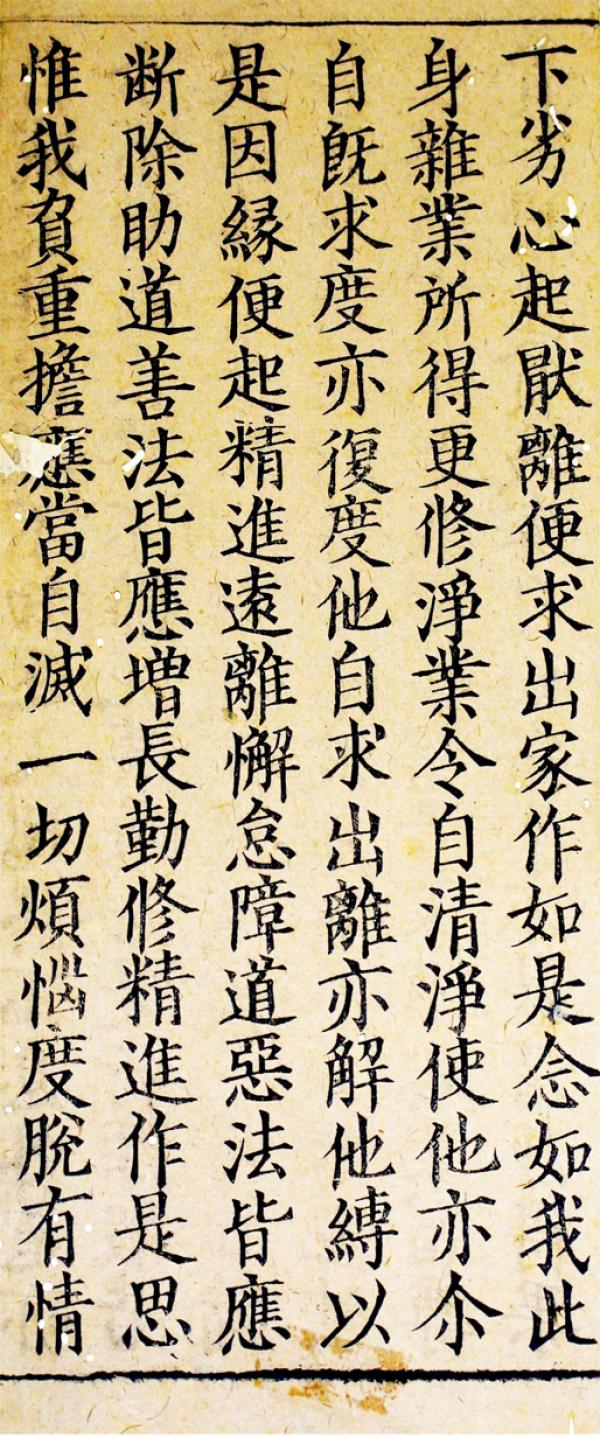 下劣心起厭離便求出家作如是念如我此
身雜業所得更修淨業令自清淨使他亦尒
自旣求度亦復度他自求出離亦解他縛以
是因縁便起精進遠離懈怠障道惡法皆應
断除助道善法皆應增長勤修精進作是思
惟我負重擔應當自滅一切煩惱度脫有情